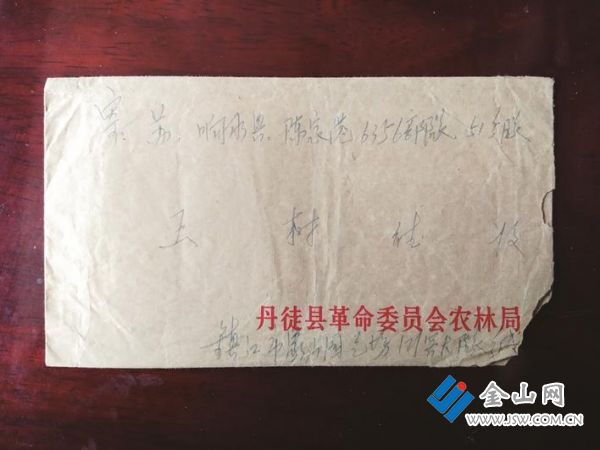 寄 苏 响水县 陈家港 6356部队 51分队
王 材 收
丹徒县革命委员会农林局
镇江市 园艺场 大队
金山网
WWW.JSW.COM.CN